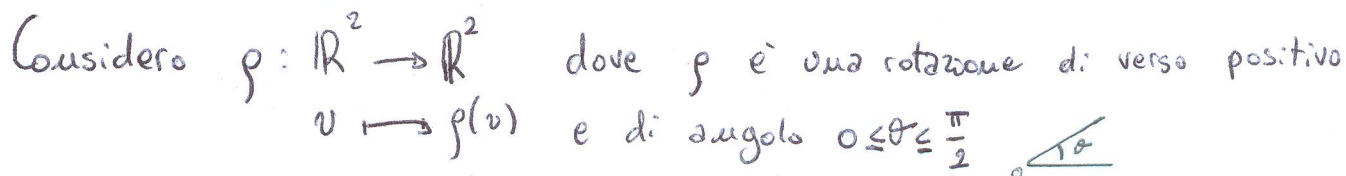 Considero ρ : ℝ² → ℝ² dove ρ è una rotazione di verso positivo
v ↦ ρ(v) e di angolo 0 ≤ θ ≤ π/2 θ
0